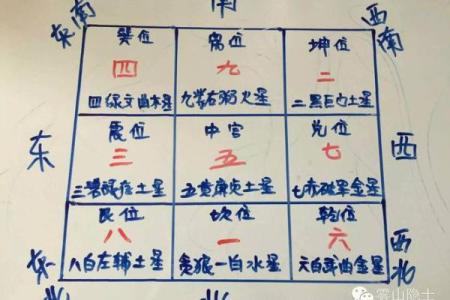 东南 南 西南
巽位 离位 坤位
四 九 二
四绿文曲木星 九紫右弼火星 二黑巨门土星
东 震位 中宫 兑位 西
三 五 七
三碧禄存土星 五黄廉贞土星 七赤破军金星
艮位 坎位 乾位
八 一 六
八白左辅土星 贪狼一白水星 六白武曲金星
东北 北 西北
雾山隐士